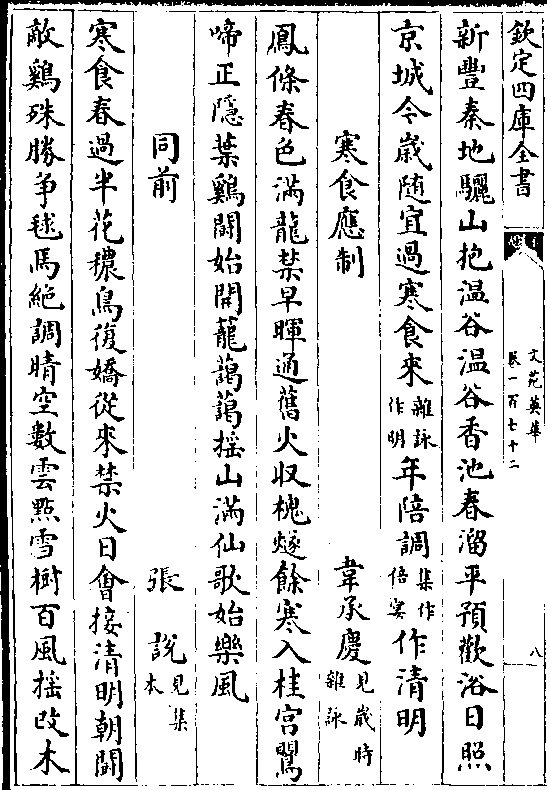 欽定四庫全書
文苑英華
卷一百七十二
八
新豐秦地驪山抱温谷温谷香池春溜平預歡浴日照
京城今歲随宜過寒食來雜詠作明年陪調集作倍宴作清明
寒食應制
韋承慶見歲時雜詠
鳳條春色滿龍禁早暉通舊火収槐燧餘寒入桂宮鸎
啼正隱葉鷄鬬始開籠藹藹揺山滿仙歌始樂風
同前
張說見集本
寒食春過半花穠鳥復嬌從來禁火日會接清明朝鬬
敵鷄殊勝争毬馬絶調晴空數雲㸃雪樹百風揺改木